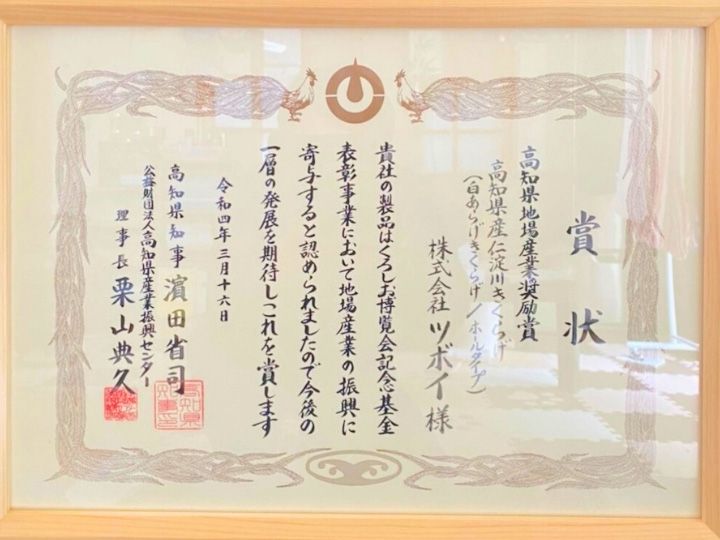 賞状
高知県地場産業奨励賞
高知県産仁淀川きくらげ
(白あらげきくらげ/ホールタイプ)
株式会社ツボイ様
貴社の製品はくろしお博覧会記念基金
表彰事業において地場産業の振興に
寄与すると認められましたので今後の
一層の発展を期待しこれを賞します
令和四年三月十六日
高知県知事 濵田省司
公益財団法人高知県産業振興センター
理事長 栗山典久